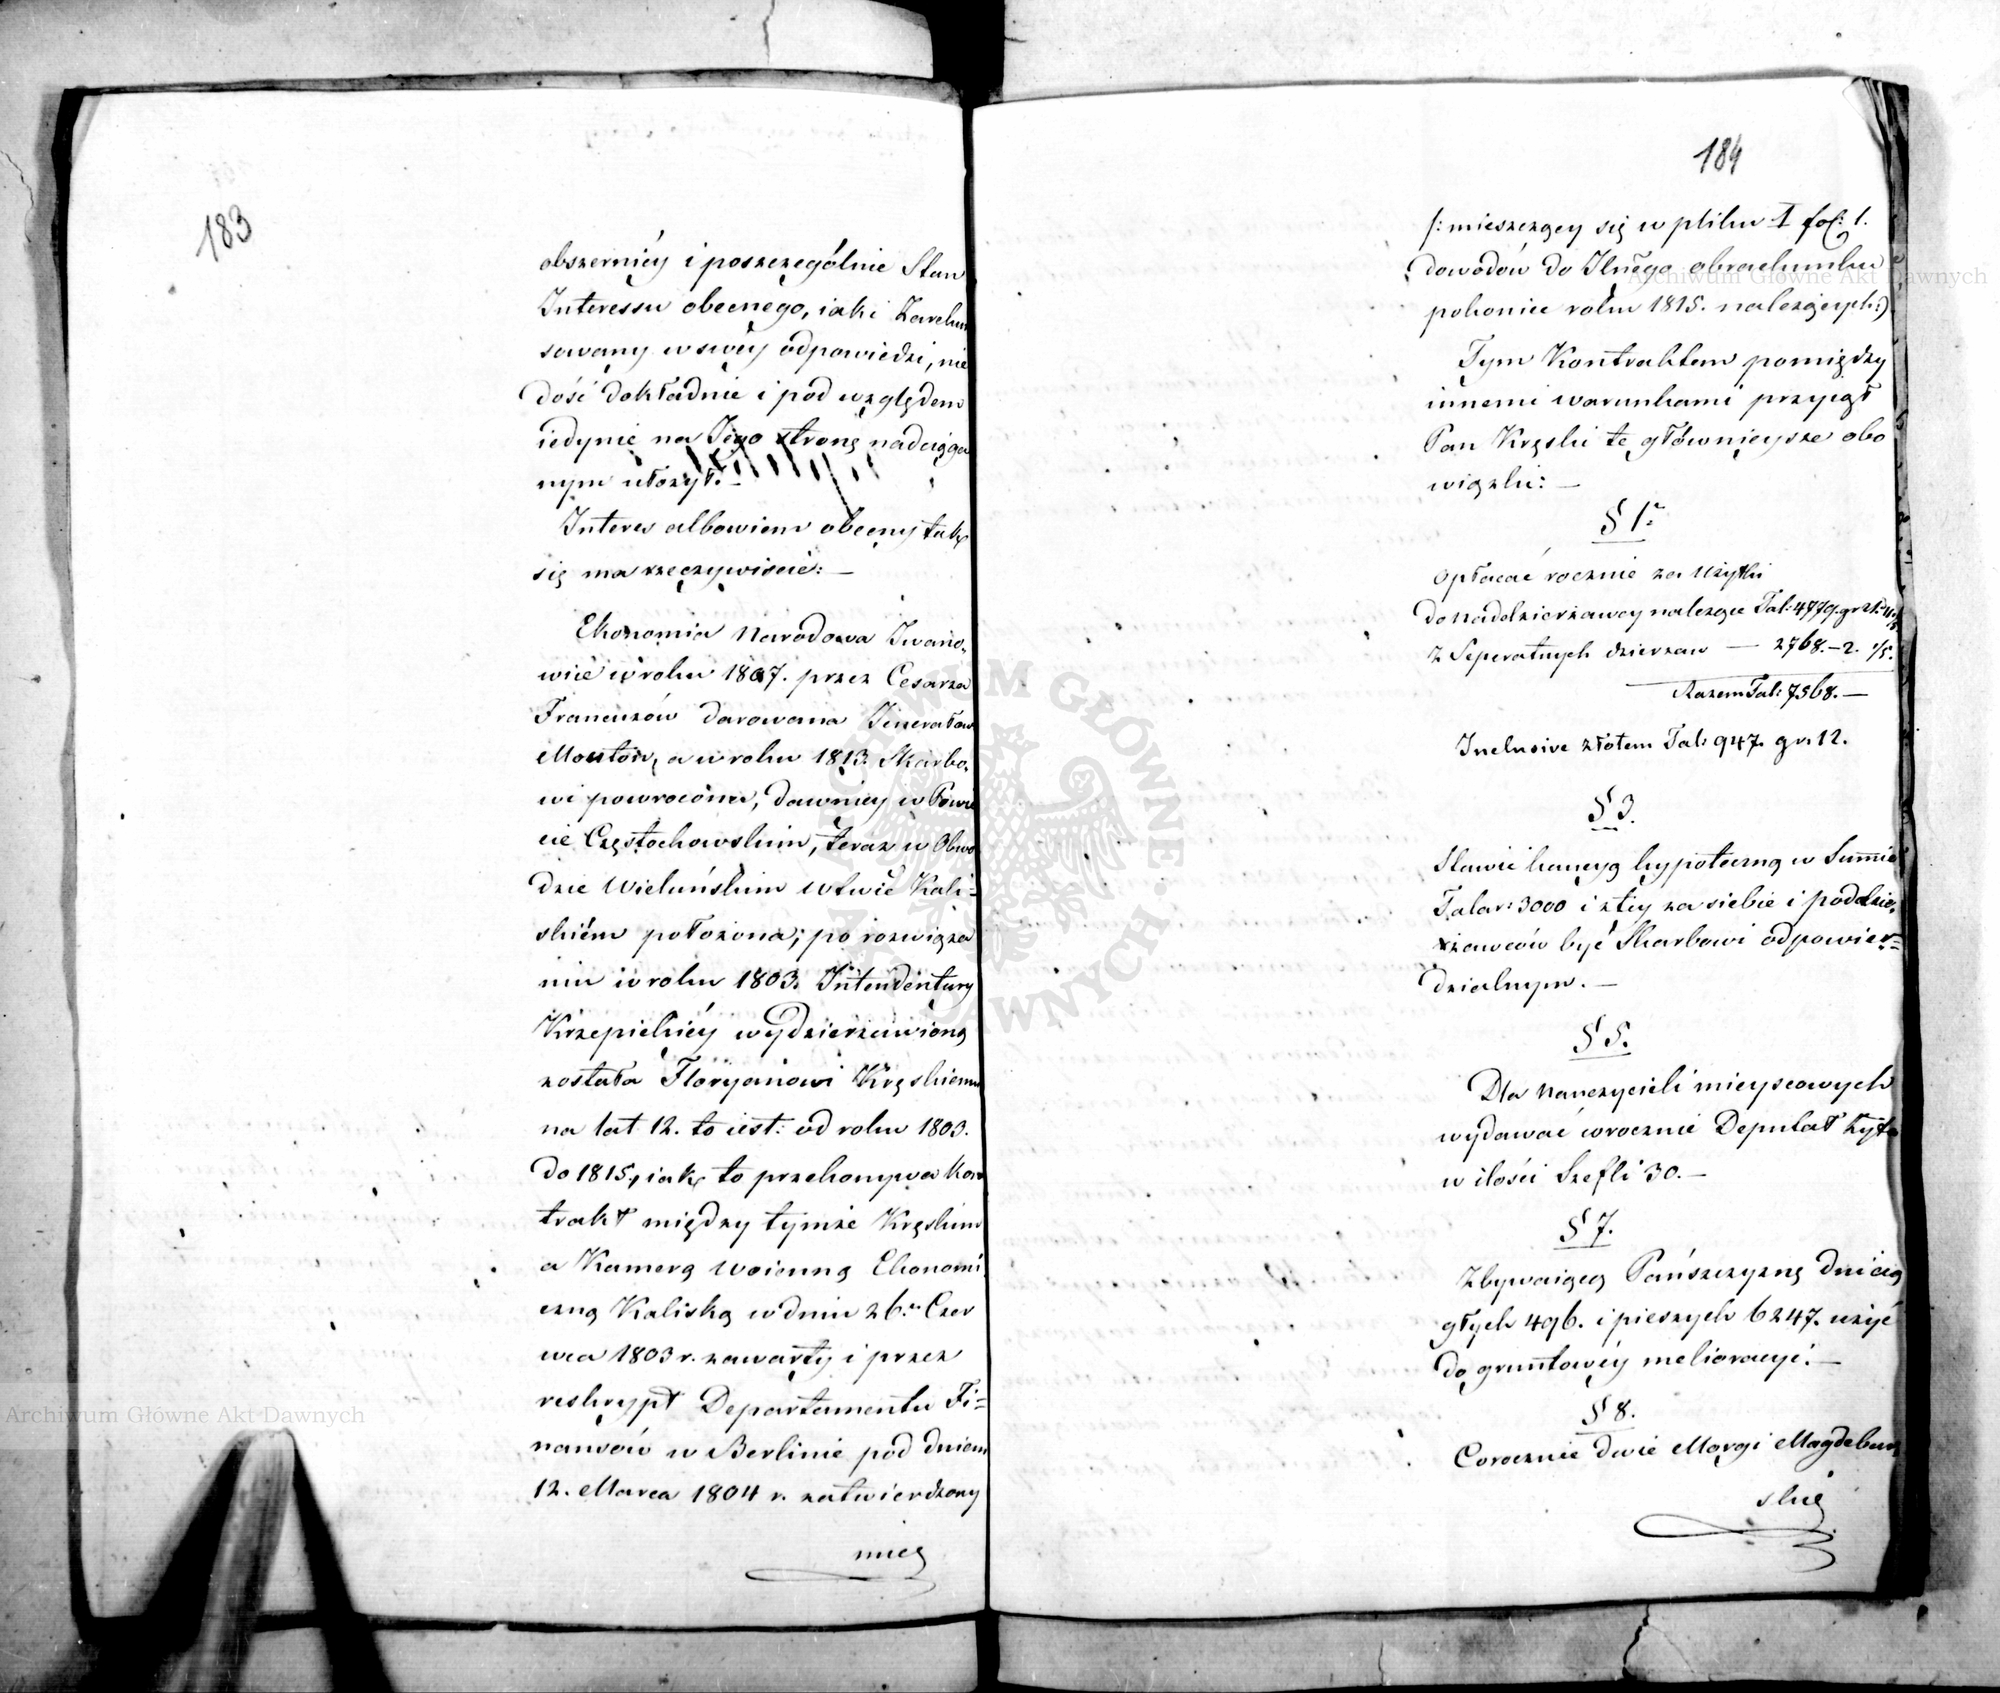 183
obszerniéy i poszczególnie Stan
Interessu obecnego, iaki Zarekur
sowany w swéy odpowiedzi, nie
dość dokładnie i pod względem
iedynie na Jego stronę naduiąga
nym ułożył.—
Interes albowiem obecny tak
się ma rzeczywiście:—
Ekonomia Narodowa Iwano-
wice w roku 1807. przez Cesarza
Francuzów darowana Jenerałow
Mouton, a w roku 1813. Skarbo-
wi powrócona, dawniey w Powie
cie Częstochowskim, teraz w Obwo
dzie Wieluńskim Wtwie Kali-
skiém położona; po rozwiąza
niu w roku 1803. Intendentury
Krzepickiéy wydzierzawioną
została Floryanowi Kręskiemu
na lat 12. to iest: od roku 1803.
do 1815, iak to przekonywa Kon
trakt między tymże Kręskim
a Kamerą Woienną Ekonomi
czną Kaliską w dniu 26. Czer
wca 1803 r. zawarty i przez
reskrypt Departamentu Fi=
nansów w Berlinie pod dniem
12. Marca 1804 r. zatwierdzony
184
/: mieszczący się w pliku I fol: 1.
dowodów do obrachunku
pokoniec roku 1815. należących:)
Tym Kontraktem pomiędzy
innemi warunkami przyiął
Pan Kręski te główniejsze obo
wiązki:—
§ 1.
opłacać rocznie za Użytki
do Naddzierzawcy należące Tal: 4779. gr
z Seperatnych dzierzaw — 2768.—2. 1/5.
Razem Tal: 7568.—
Inclusive złotem Tal: 947. gr. 12.
§ 3.
Stawić kaucyą hypoteczną w Summie
Talar: 3000 i z téy za siebie i poddzie-
rzawców być Skarbowi odpowie=
dzialnym.—
§ 5.
Dla Nauczycieli mieyscowych
wydawać corocznie Deputat Żyta
w ilości Szefli 30.—
§ 7.
Zbywaiącą Pańszczyznę dni cią
głych 496. i pieszych 6247. użyć
do gruntowéy melioracyi.—
§ 8.
Corocznie dwie Morgi Magdebur
skie
Archiwum Główne Akt Dawnych
Archiwum Główne Akt Dawnych
ARCHIWUM GŁÓWNE AKT DAWNYCH